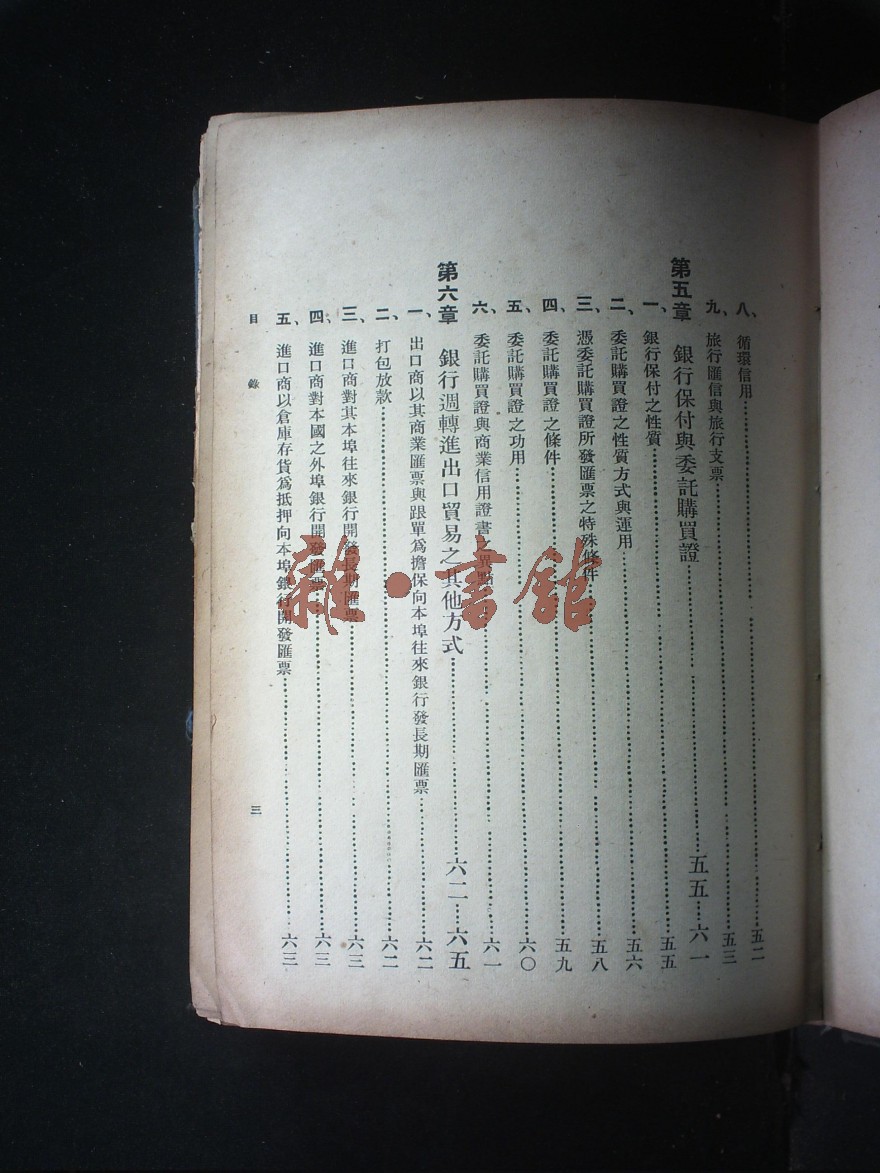 八、循環信用……五二
九、旅行匯信與旅行支票……五三
第五章 銀行保付與委託購買證……五五…六一
一、銀行保付之性質……五五
二、委託購買證之性質方式與運用……五六
三、憑委託購買證所發匯票之特殊條件……五八
四、委託購買證之條件……五九
五、委託購買證之功用……六〇
六、委託購買證與商業信用證書之異點……六一
第六章 銀行週轉進出口貿易之其他方式……六二…六五
一、出口商以其商業匯票與跟單爲擔保向本埠往來銀行發長期匯票……六二
二、打包放款……六二
三、進口商對其本埠往來銀行開發長期匯票……六三
四、進口商對本國之外埠銀行開發匯票……六三
五、進口商以倉庫存貨爲抵押向本埠銀行開發匯票……六三
目錄 三
雜·書館